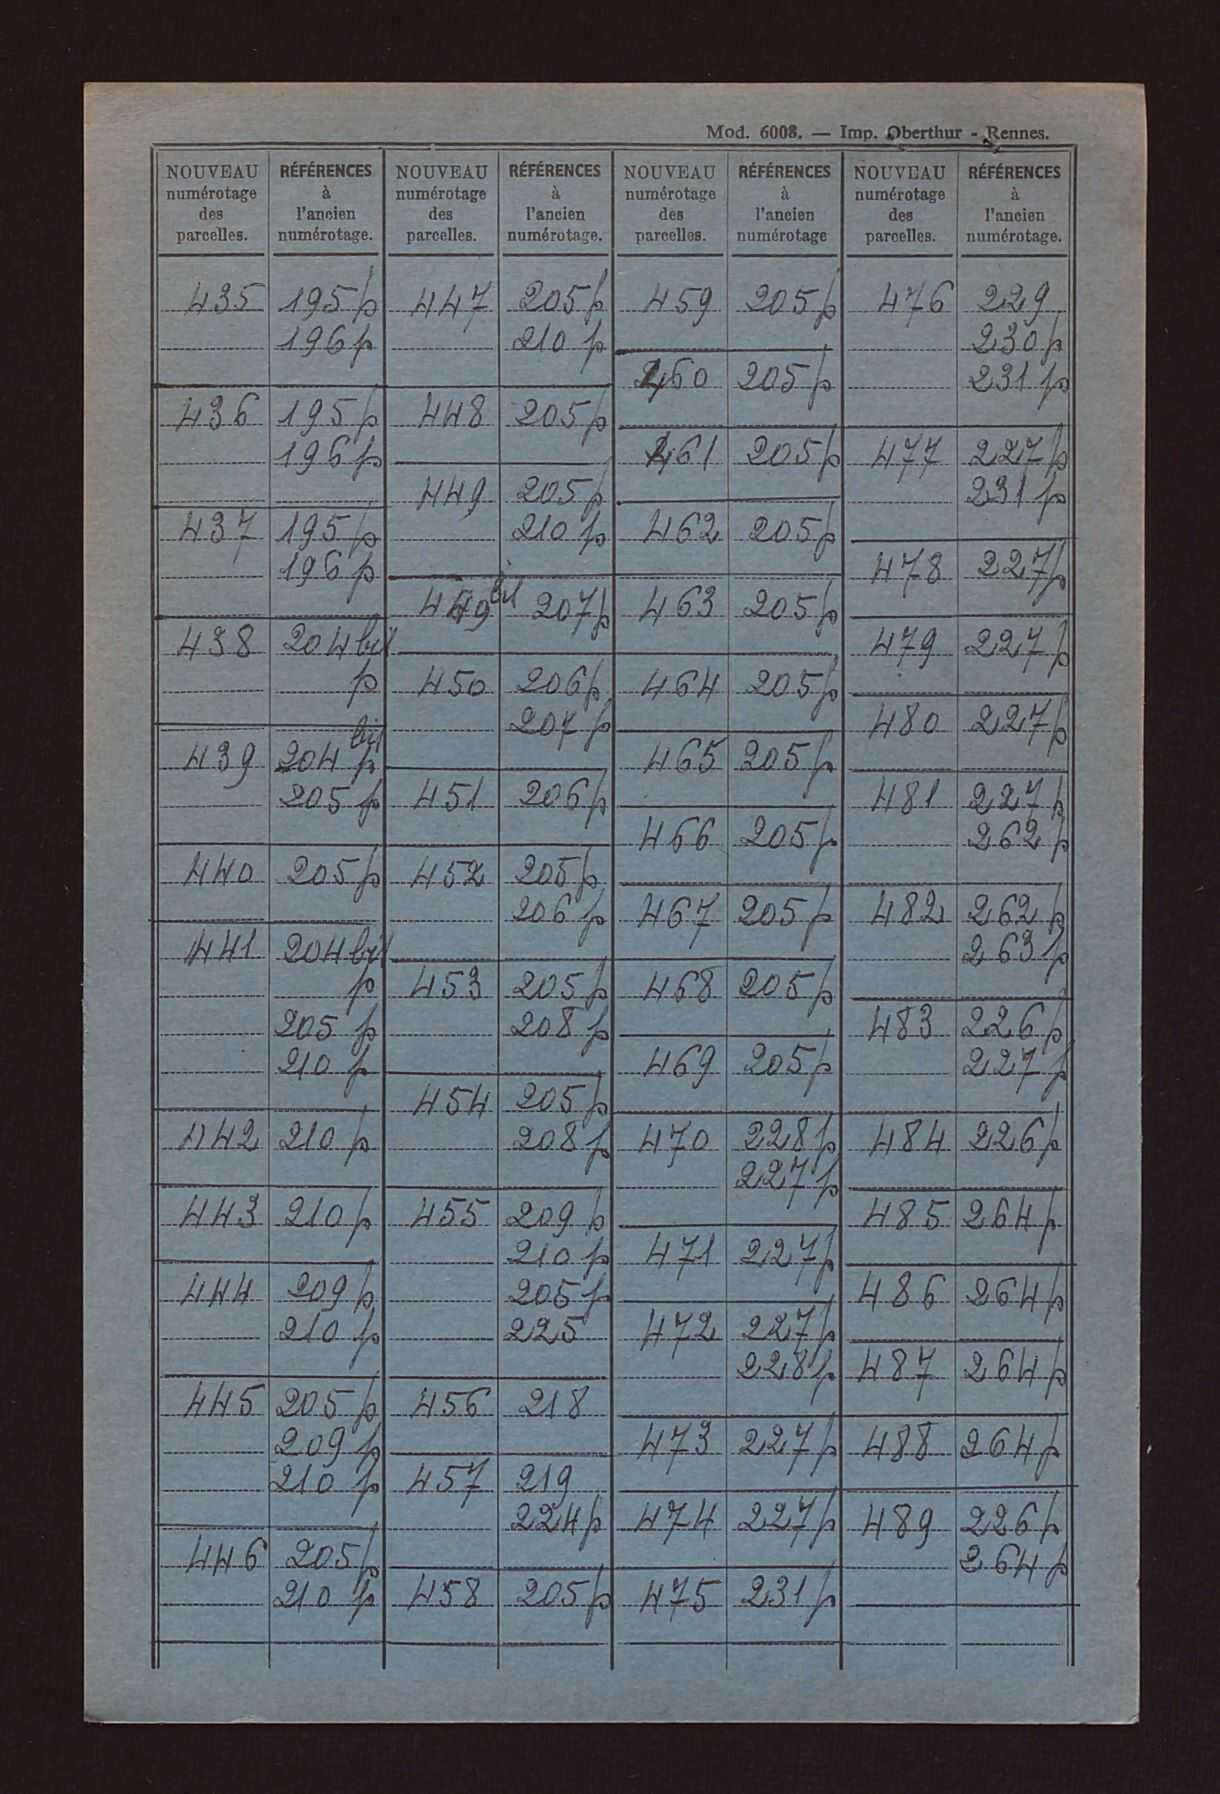 Mod. 6008. — Imp. Oberthur - Rennes.
NOUVEAU numérotage des parcelles.
RÉFÉRENCES à l'ancien numérotage.
NOUVEAU numérotage des parcelles.
RÉFÉRENCES à l'ancien numérotage.
NOUVEAU numérotage des parcelles.
RÉFÉRENCES à l'ancien numérotage
NOUVEAU numérotage des parcelles.
RÉFÉRENCES à l'ancien numérotage.
435 195 p
196 p
436 195 p
196 p
437 195 p
196 p
438 204 bis
p
439 204 bis p
205 p
440 205 p
441 204 bis
p
205 p
210 p
442 210 p
443 210 p
444 209 p
210 p
445 205 p
209 p
210 p
446 205 p
210 p
447 205 p
210 p
448 205 p
449 205 p
210 p
449 bis 207 p
450 206 p
207 p
451 206 p
452 205 p
206 p
453 205 p
208 p
454 205 p
208 p
455 209 p
210 p
205 p
225
456 218
457 219
224 p
458 205 p
459 205 p
460 205 p
461 205 p
462 205 p
463 205 p
464 205 p
465 205 p
466 205 p
467 205 p
468 205 p
469 205 p
470 228 p
227 p
471 227 p
472 227 p
228 p
473 227 p
474 227 p
475 231 p
476 229
230 p
231 p
477 227 p
231 p
478 227 p
479 227 p
480 227 p
481 227 p
262 p
482 262 p
263 p
483 226 p
227 p
484 226 p
485 264 p
486 264 p
487 264 p
488 264 p
489 226 p
264 p